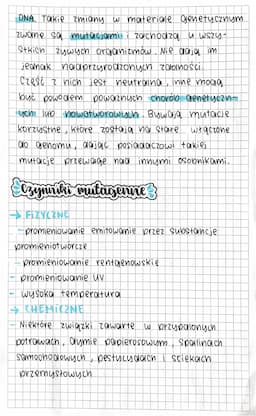 DNA. Takie zmiany w materiale genetycznym
zwane są mutacjami i zachodzą u wszy-
stkich żywych organizmów. Nie dają im
jednak nadprzyrodzonych zdolności.
Część z nich jest neutralna, inne mogą
być powodem poważnych chorób genetyczn-
ych lub nowotworowych. Bywają mutacje
korzystne, które zostają na stałe włączone
do genomu, dając posiadaczowi takiej
mutacje przewagę nad innymi osobnikami.
Czynniki mutagenne
→ FIZYCZNE
- promieniowanie emitowane przez substancje
promieniotwórcze
- promieniowanie rentgenowskie
- promieniowanie UV
- wysoka temperatura
→ CHEMICZNE
- Niektóre związki zawarte w przypalonych
potrawach, dymie papierosowym, spalinach
samochodowych, pestycydach i ściekach
przemysłowych